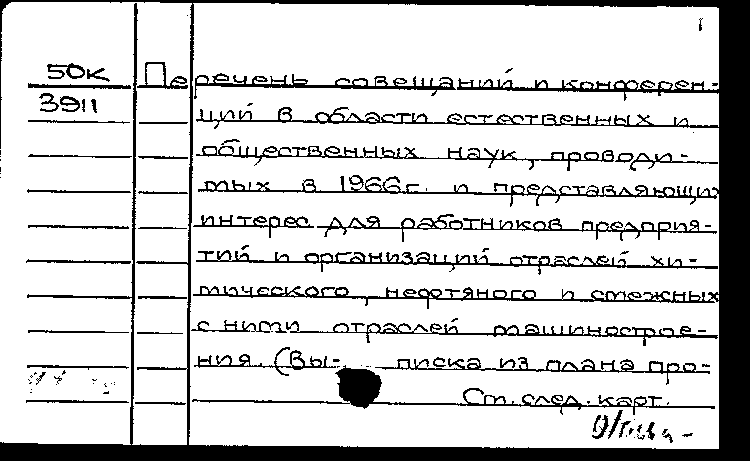 1
50К
3911
Перечень совещаний и конферен-
ций в области естественных и
общественных наук, проводи-
мых в 1966г. и представляющих
интерес для работников предприя-
тий и организаций отраслей хи-
мического, нефтяного и смежных
с ними отраслей машинострое-
ния. (Вы- писка из плана про-
См. след. карт.